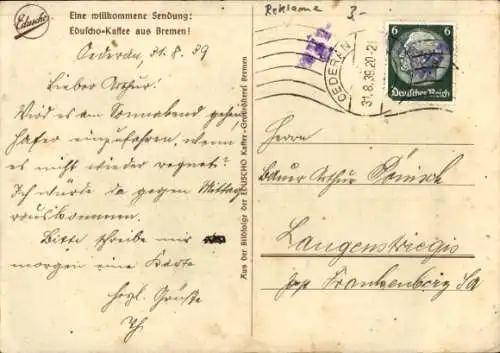 Eduscho
Eine willkommene Sendung:
Eduscho-Kaffee aus Bremen!
Oederan, 31.8.39
Lieber Arthur!
Wird es am Sonnabend gehen,
Hafer einzufahren, wenn
es nicht wieder regnet?
Ich würde da gegen Mittag
rauskommen.
Bitte schreibe mir
morgen eine Karte
Herzl. Grüße
Aus der Bildfolge der EDUSCHO Kaffee-Großrösterei Bremen
Reklame 3-
OEDERAN
31.8.39.20-21
6 6
Deutsches Reich
Herrn
Bauer Arthur
Langenstriegis
Frankenberg Sa